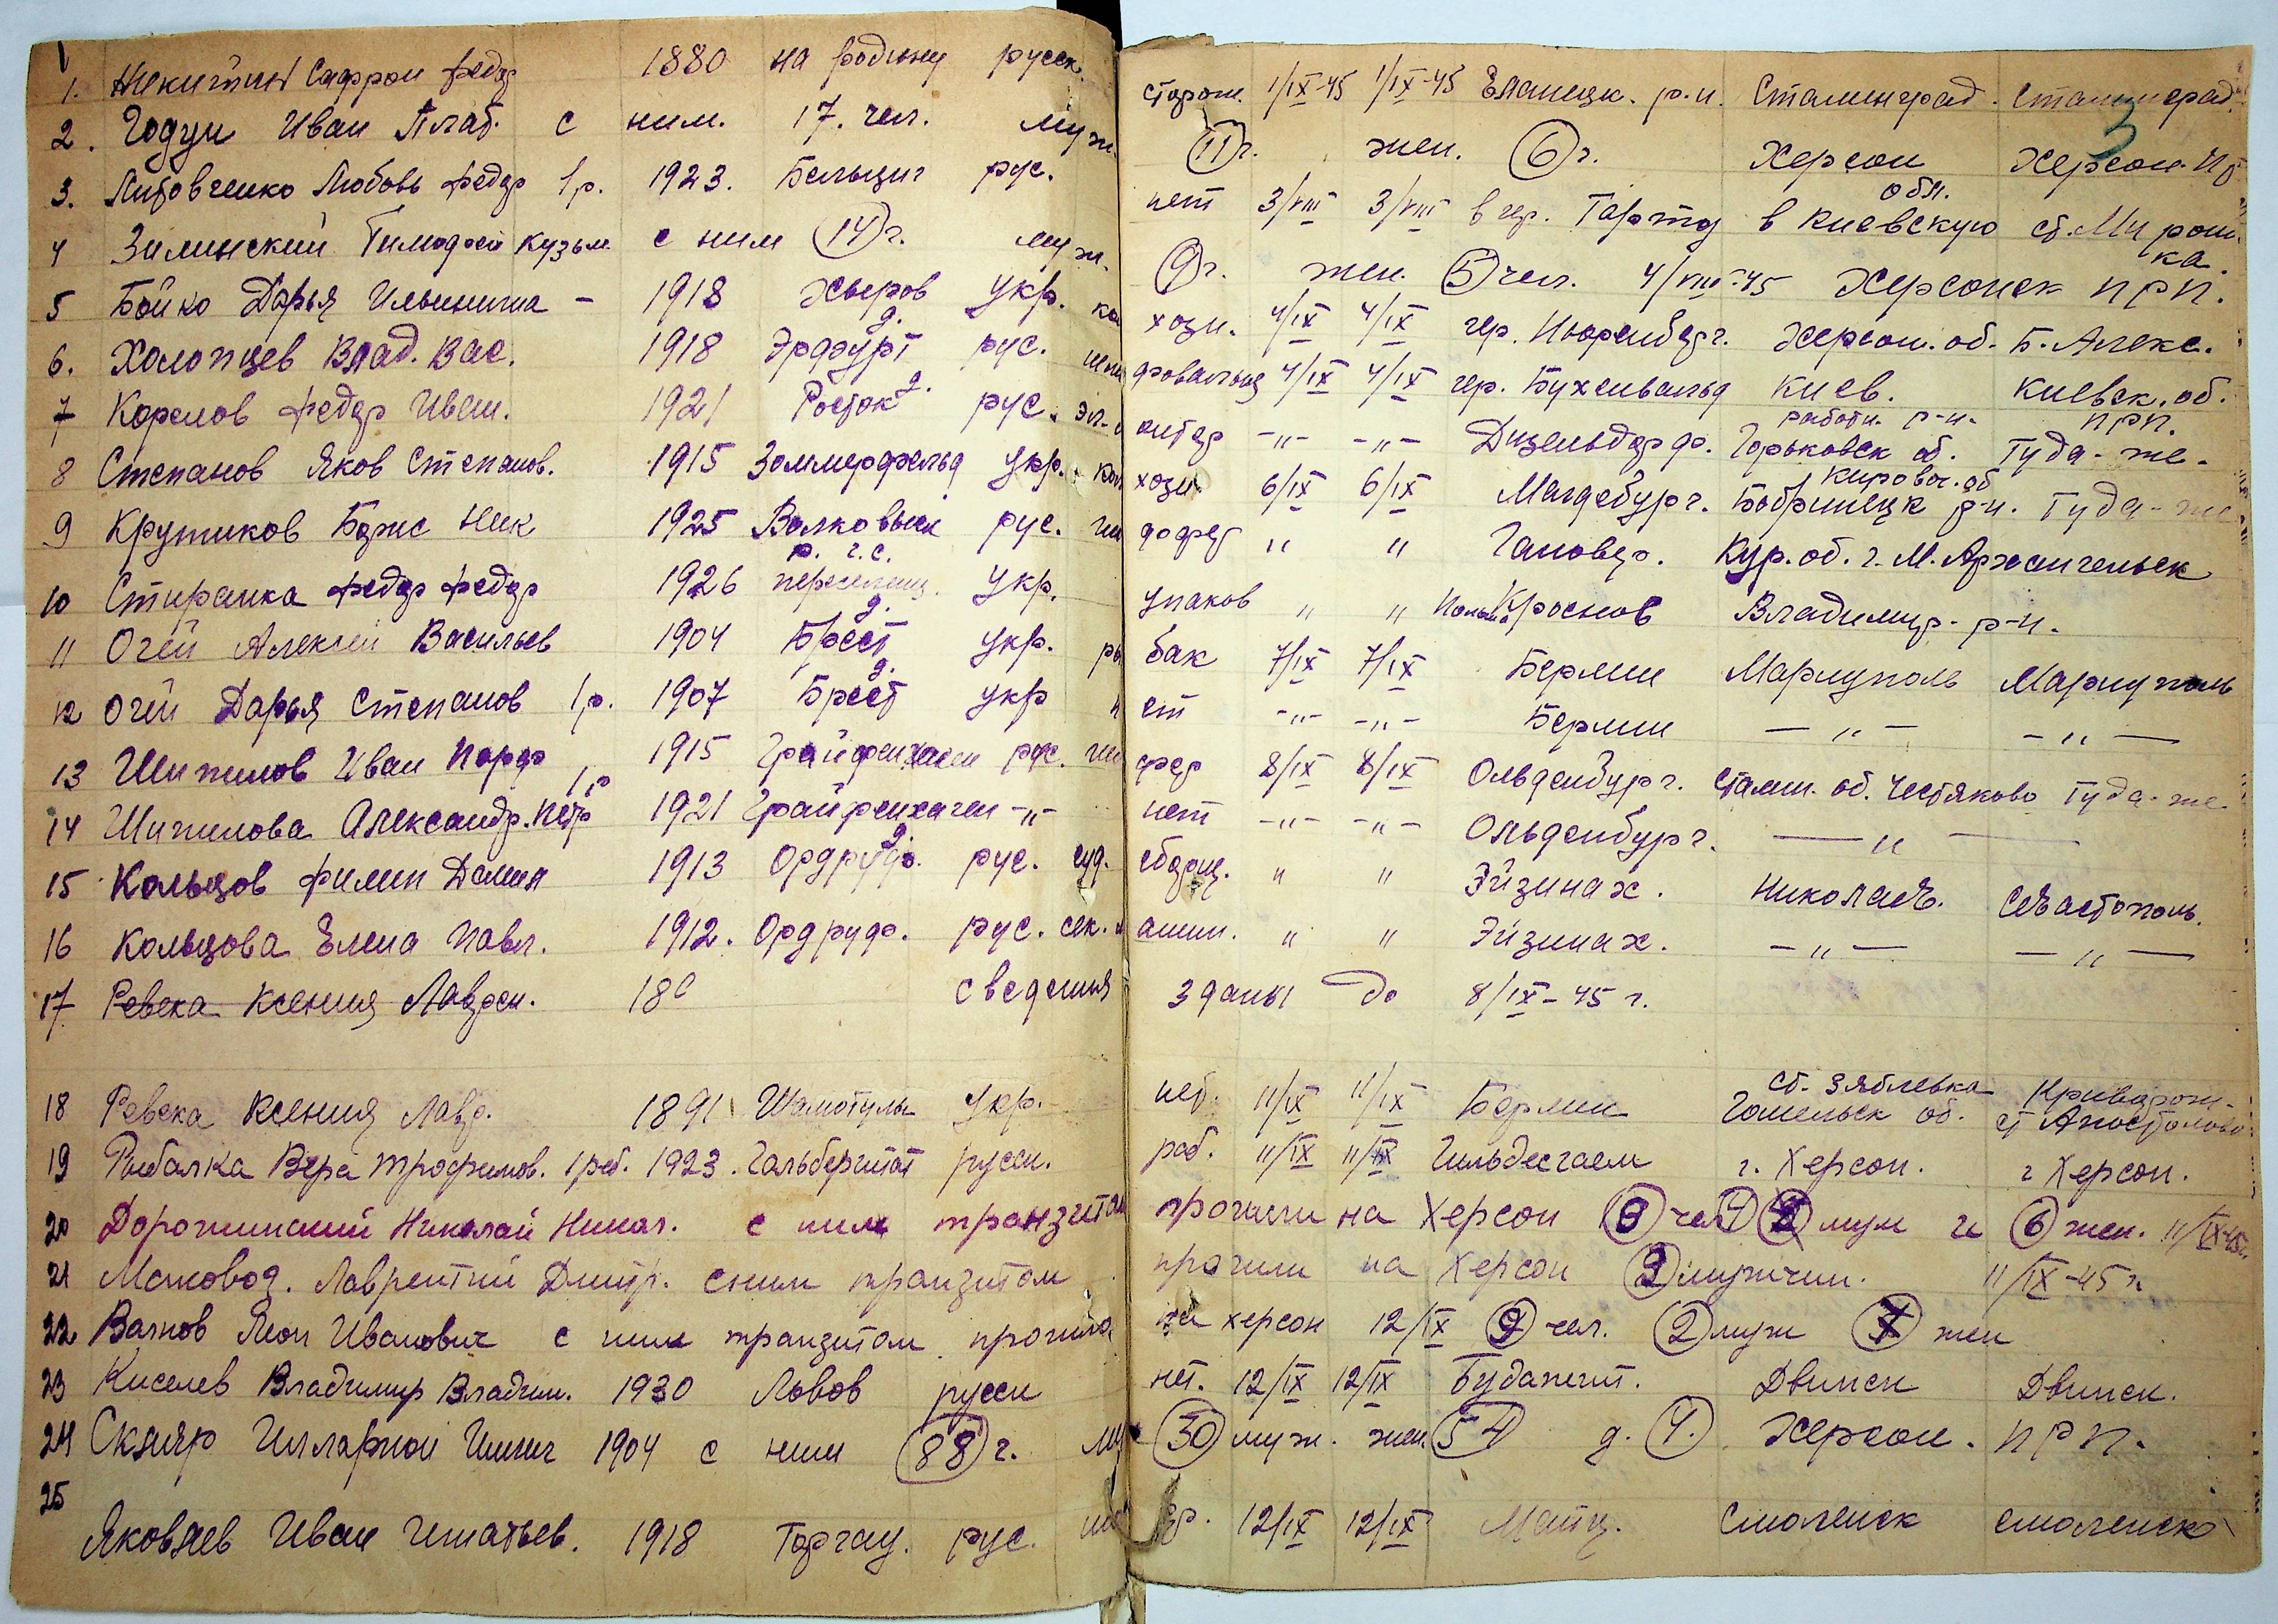 1. Никитин Сафрон Федор 1880 на родину русск. сторож. 1/IX-45 1/IX-45 Еланецк. р.н. Сталинград. Сталинград.
3
2. Годун Иван Плат. с ним. 17. чел. муж. 11 г. жен. 6 г. Херсон Херсон
3. Литовченко Любовь Федор 1 р. 1923. Бельциг рус. нет 3/VIII 3/VIII в гор. Тарту в Киевскую обл. ст. Мироновка.
4 Зилинский Тимофей Кузьм с ним 14 г. муж. 9 г. жен. 5 чел. 4/VIII-45 Херсонск ПРП.
5 Бойко Дарья Ильинична - 1918 Хыров укр. хозн. 4/IX 4/IX гор. Нюренберг. Херсон. об. Б. Алекс.
6. Холопцев Влад. Вас. 1918 г. Эрфурт рус. 4/IX 4/IX гор. Бухенвальд Киев. Киевск. об.
7 Корелов Федор Иван. 1921 Росток г. рус. -"- -"- Дизельдорф. Горьковск об. работн. р-н. ПРП. Туда-же.
8 Степанов Яков Степанов. 1915 Зоммерфельд укр. хозн 6/IX 6/IX Магдебург. Бобринецк р-н. Кировог. об Туда-же
9 Крутиков Борис Ник 1925 Волковыск рус. шофер " " Гановер. Кур. об. г. М. Архангельск
10 Стиранка Федор Федор 1926 р. г. с. переселенц. укр. упаков " " Польша Кроснов Владимир- р-н.
11 Огей Алексей Васильев 1904 г. Брест укр. рыбак 7/IX 7/IX Берлин Мариуполь Мариуполь
12 Огей Дарья Степанов 1 р. 1907 г. Брест укр нет -"- -"- Берлин -"- -"-
13 Шипилов Иван Порф 1915 Грайфенхаген рус. шофер 8/IX 8/IX Ольденбург. Сталин. об. Чистяково Туда-же.
14 Шипилова Александр. Петр 1 р 1921 Грайфенхаген -"- нет -"- -"- Ольденбург. -"-
15 Кольцов Филип Данил 1913 г. Ордруф. рус. суд. сборщ. " " Эйзинах. Николаев. Севастополь.
16 Кольцова Елена Павл. 1912. Ордруф. рус. сек. машин. " " Эйзинах. -"- -"-
17 Ревека Ксения Лаврен. 18 сведения зданы до 8/IX-45 г.
18 Ревека Ксения Лавр. 1891 Шамотулы укр. неб. 11/IX 11/IX Берлин ст. Зяблевка Гомельск об. Криворож. ст Апостолово
19 Рыбалка Вера Трофимов. 1 реб. 1923. Гальберштат русск. раб. 11/IX 11/IX Гильдесгаем г. Херсон. г Херсон.
20 Дорожинский Николай Никол. с ним транзитом прогнали на Херсон 8 чел муж и 6 жен. 11/IX-45г.
21 Маховод. Лаврентий Дмитр. с ним транзитом прогнали на Херсон 3 мужчин. 11/IX-45 г.
22 Вагнов Леон Иванович с ним транзитом прогнало на херсон 12/IX 9 чел. 2 муж 7 жен
23 Киселев Владимир Владим. 1930 Львов русск нет. 12/IX 12/IX Будапешт. Двинск Двинск.
24 Скляр Илларион Ильич 1904 с ним 88 г. 30 муж. жен. 54 д. 4. Херсон. ПРП.
25
Яковлев Иван Игнатьев. 1918 Торгау. рус. 12/IX 12/IX Майнц. Смоленск смоленск